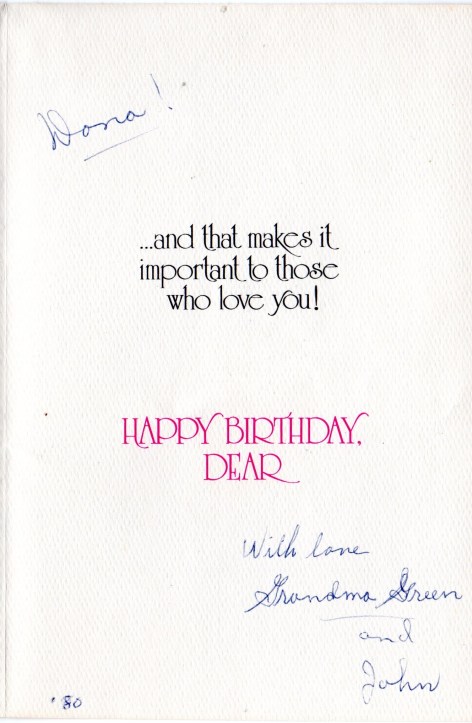 Dona!
...and that makes it
important to those
who love you!
HAPPY BIRTHDAY,
DEAR
With love
Grandma Green
and
John
'80